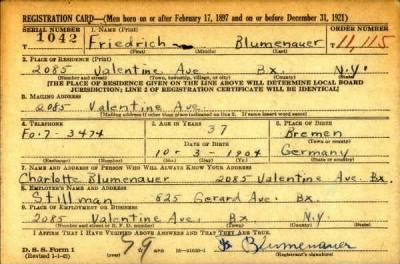 REGISTRATION CARD—(Men born on or after February 17, 1897 and on or before December 31, 1921)
SERIAL NUMBER 1. NAME (Print) ORDER NUMBER
1042 Friedrich — Blumenauer T 11,115
(First) (Middle) (Last)
2. PLACE OF RESIDENCE (Print)
2085 Valentine Ave. Bx. N.Y.
(Number and street) (Town, township, village, or city) (County) (State)
[THE PLACE OF RESIDENCE GIVEN ON THE LINE ABOVE WILL DETERMINE LOCAL BOARD
JURISDICTION; LINE 2 OF REGISTRATION CERTIFICATE WILL BE IDENTICAL]
3. MAILING ADDRESS
2085 Valentine Ave
[Mailing address if other than place indicated on line 2. If same insert word same]
4. TELEPHONE 5. AGE IN YEARS 6. PLACE OF BIRTH
Fo. 7-3474 37 Bremen
DATE OF BIRTH (Town or county)
10-3-1904 Germany
(Exchange) (Number) (Mo.) (Day) (Yr.) (State or country)
7. NAME AND ADDRESS OF PERSON WHO WILL ALWAYS KNOW YOUR ADDRESS
Charlotte Blumenauer 2085 Valentine Ave. Bx.
8. EMPLOYER'S NAME AND ADDRESS
Stillman 825 Gerard Ave. Bx.
9. PLACE OF EMPLOYMENT OR BUSINESS
2085 Valentine Ave. Bx. N.Y.
(Number and street or R. F. D. number) (Town) (County) (State)
I AFFIRM THAT I HAVE VERIFIED ABOVE ANSWERS AND THAT THEY ARE TRUE.
D. S. S. Form 1 Blumenauer
(Revised 1-1-42) (over) (Registrant's signature)